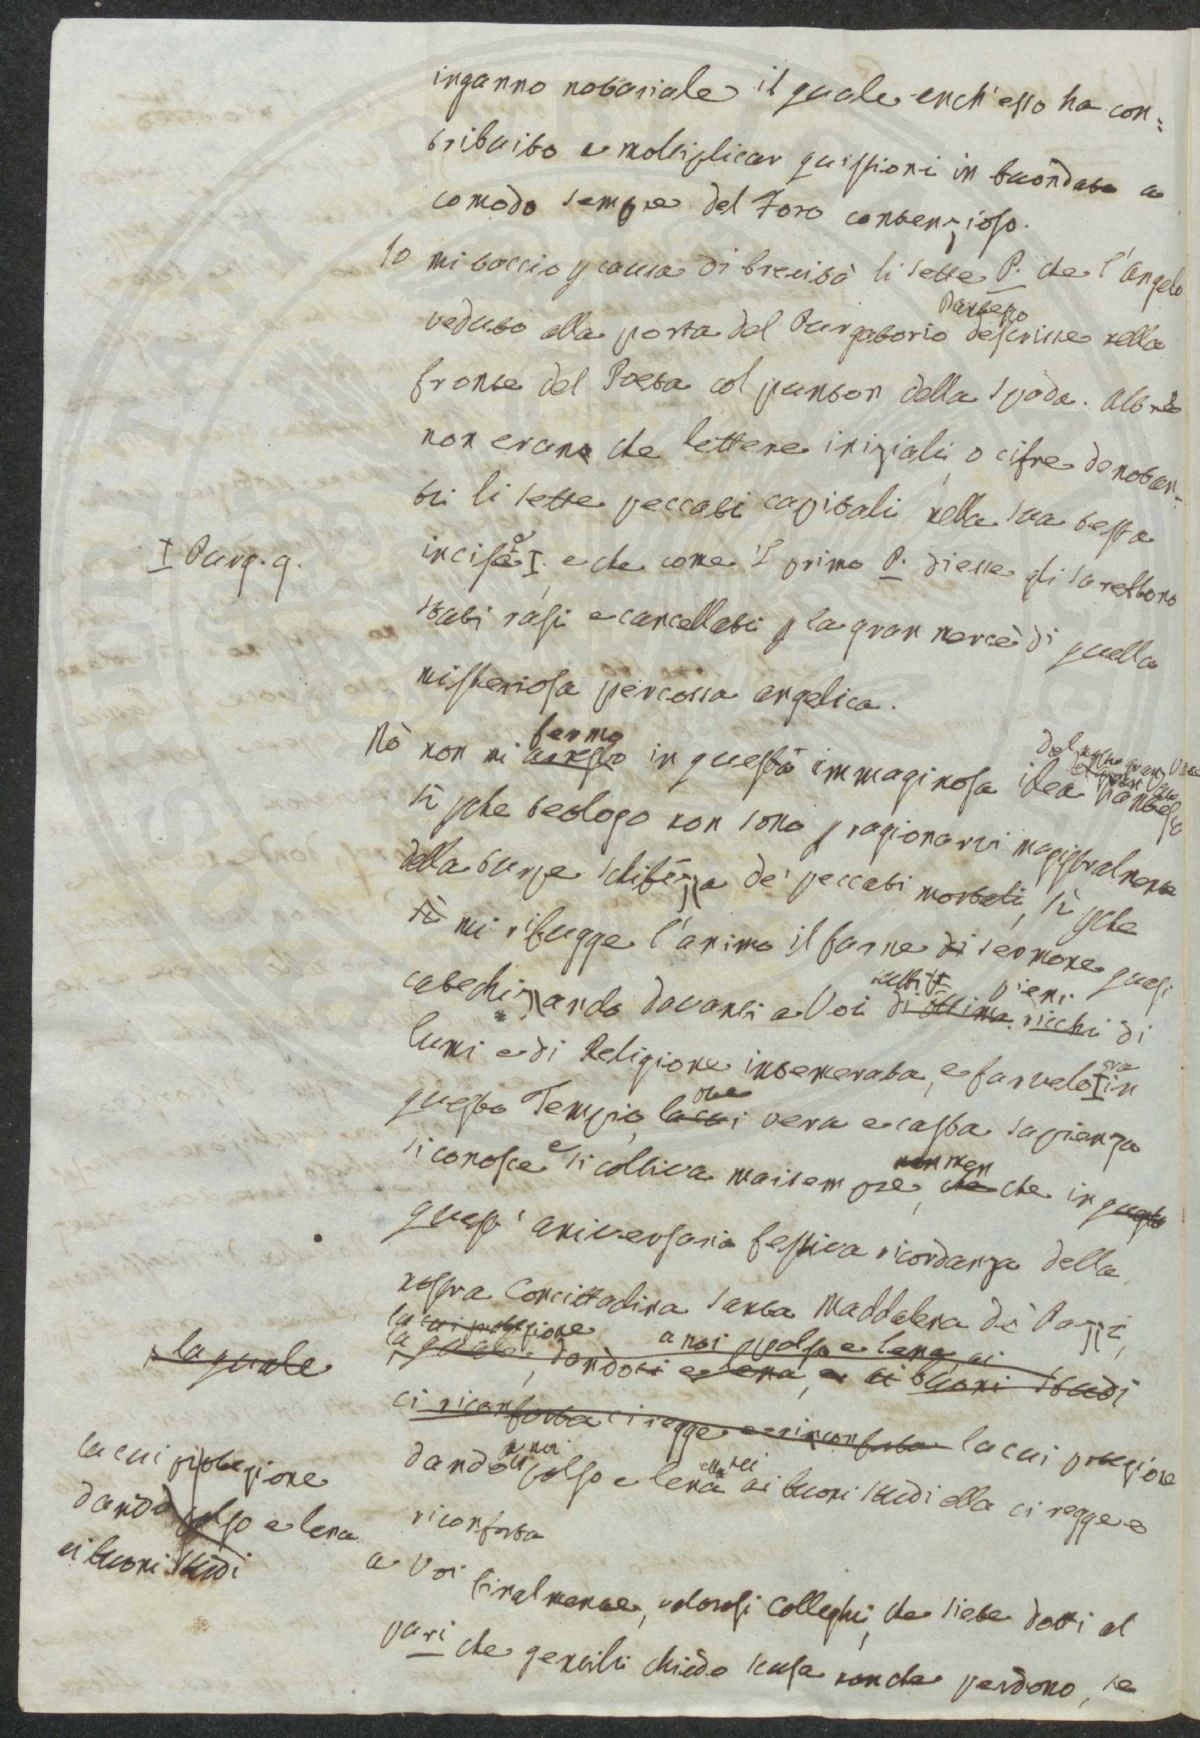 inganno notariale il quale anch'esso ha con=
tribuito a moltiplicar quistioni in buondato a
comodo sempre del Foro contenzioso.
Io mi taccio p causa di brevità li sette P. che l'Angelo
veduto alla porta del Purgatorio descrisse nella
Dantesco
fronte del Poeta col punton della spada. Altro
non erano che lettere iniziali, o cifre denotan-
ti li sette peccati capitali nella sua testa
incise I, e che come 'l primo P. diesse gli sarebbono
I Purg. 9.
stati rasi e cancellati p la gran mercè di quella
misteriosa percossa angelica.
Nò non mi arresto in questa immaginosa idea
fermo
sì pche teologo non sono p ragionarvi magistralmente
della turpe schifezza de' peccati mortali, sì pche
sì mi rifugge l'animo il farne di sermone quasi
catechizzando davanti a Voi di ricchi di
pieni
lumi e di Religione intemerata, e farvelo I in
ora
questo Tempio, la cui vera e casta sapienza
ove
si conosce e si coltiva maisempre, che che in questo
non men
quest' aniversaria festiva ricordanza della
nostra Concittadina Santa Maddalena de' Pazzi,
la cui protezione
la quale, dandoci e lena, e ai buoni studi
a noi polso e lena, ai
la quale
ci riconforta ci regge e riconforta la cui protezione
dando polso e lena ai buoni studi ella ci regge e
a noi
riconforta
la cui protezione
dando polso e lena
ai buoni studi
a Voi finalmente, valorosi Colleghi, che siete dotti al
pari che gentili chiedo scusa non che perdono, se